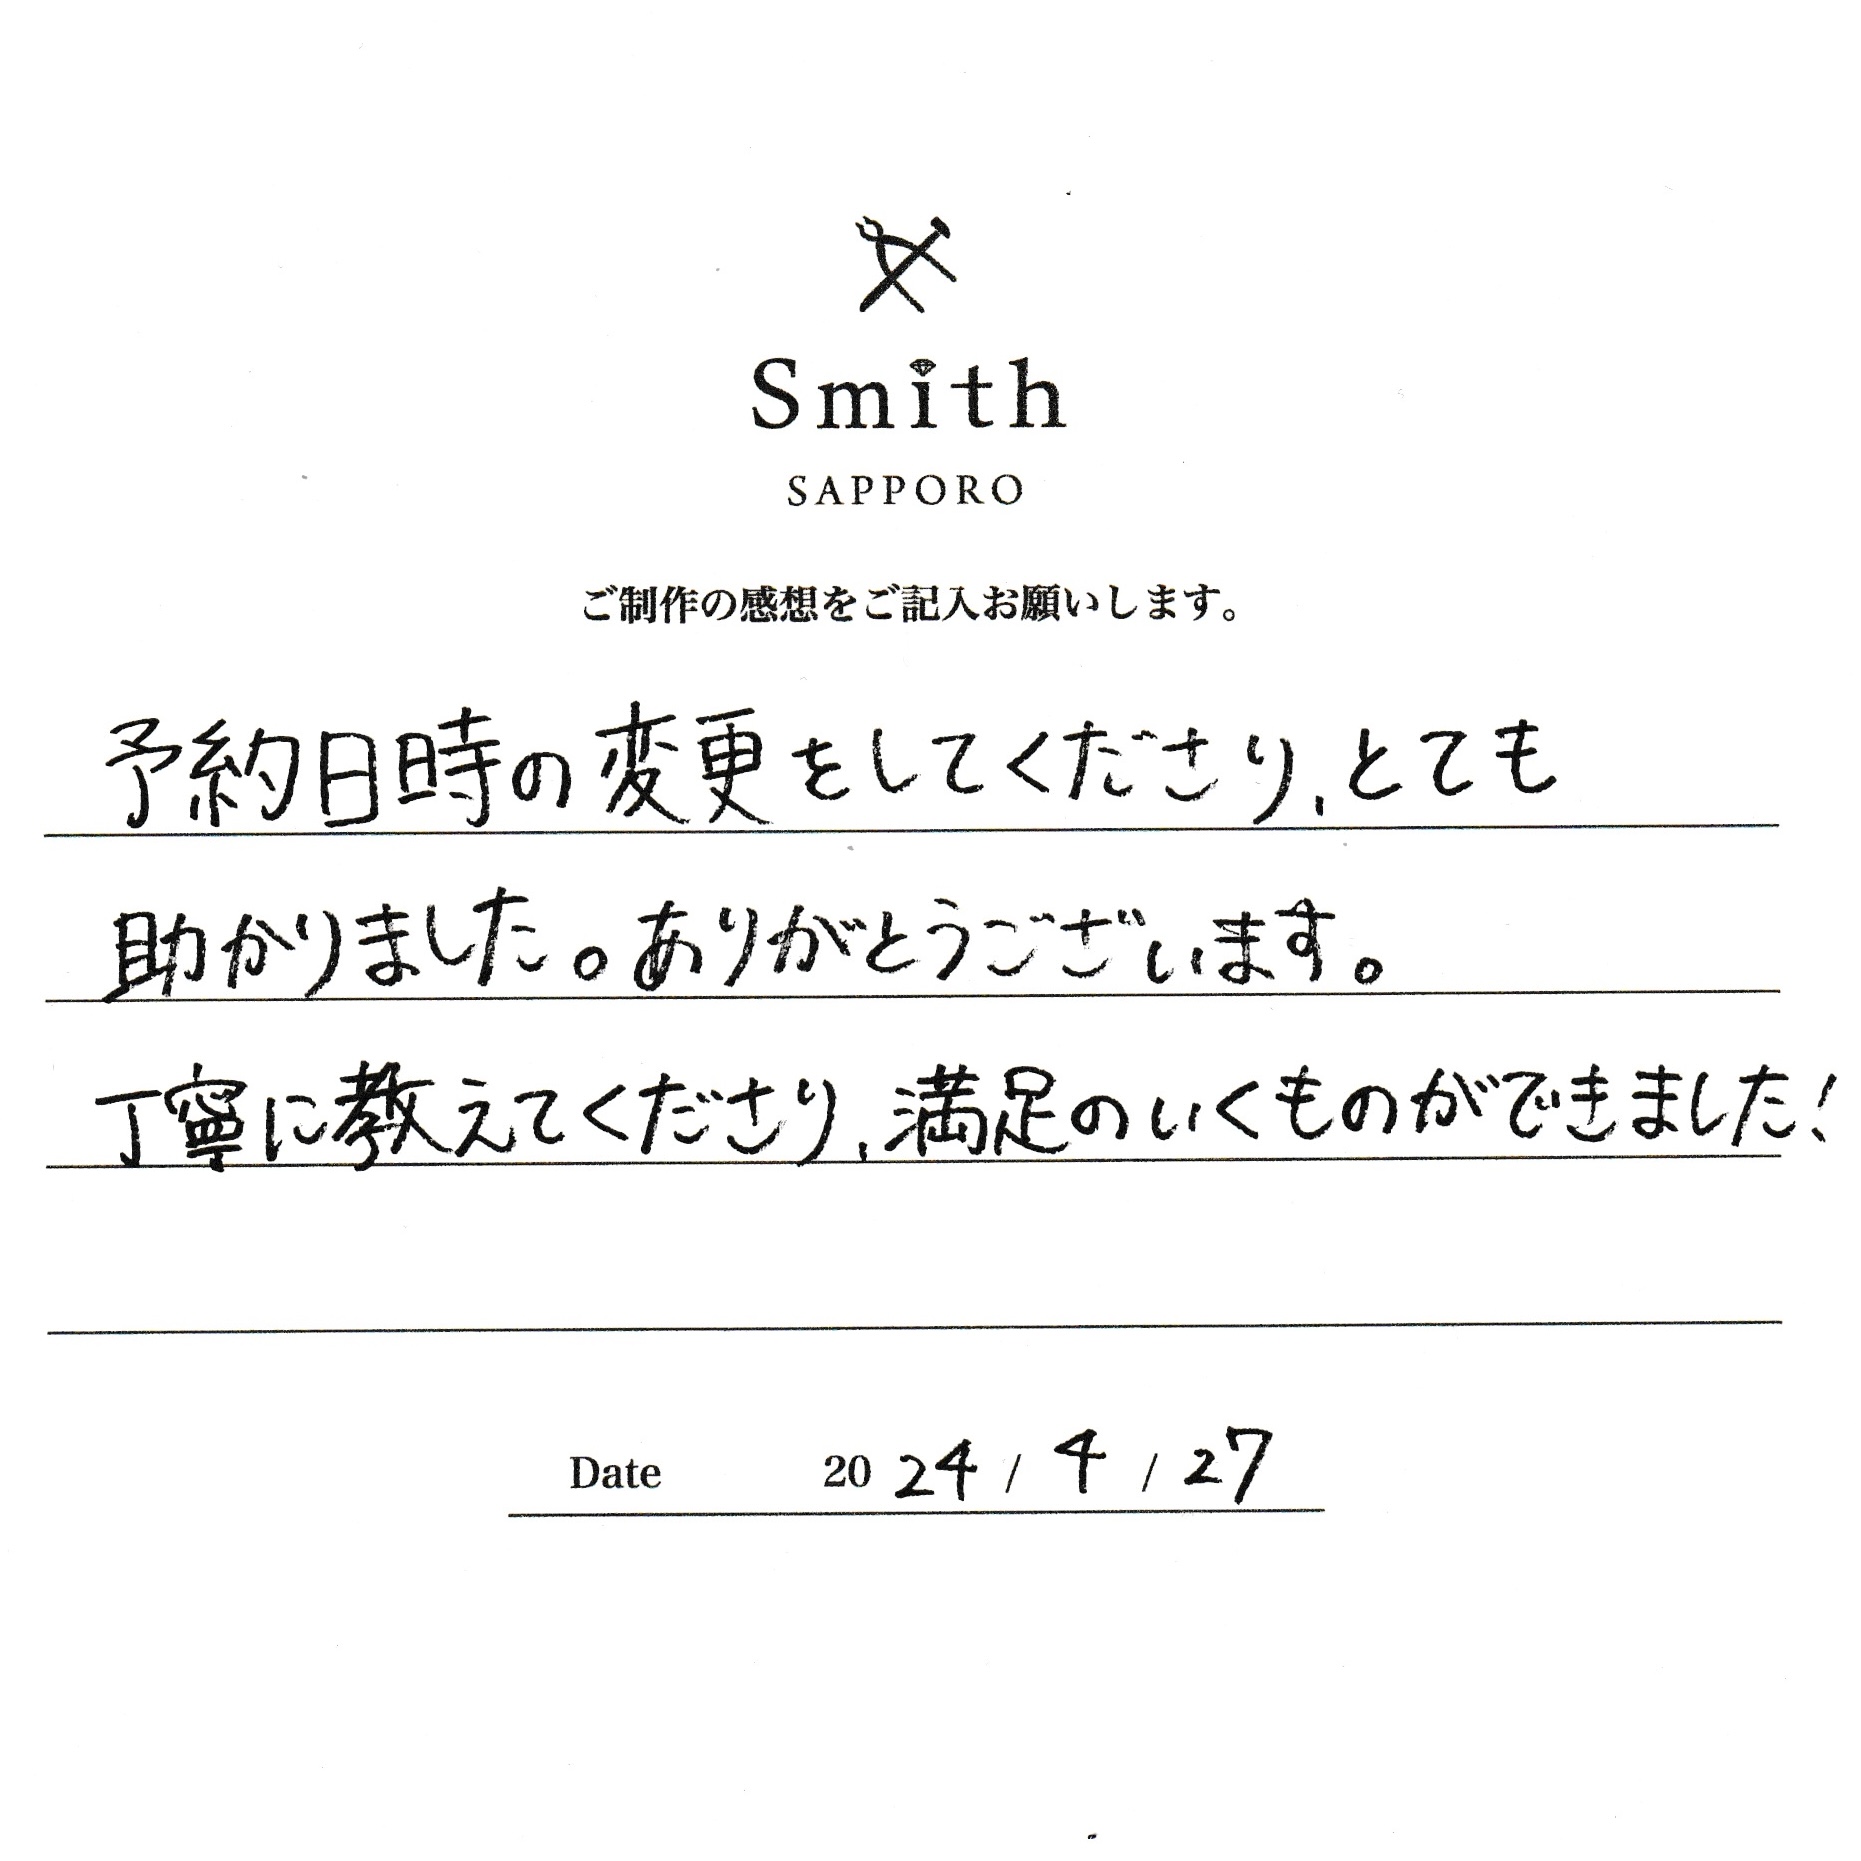 Smith
SAPPORO
ご制作の感想をご記入お願いします。
予約日時の変更をしてくださり、とても
助かりました。ありがとうございます。
丁寧に教えてくださり、満足のいくものができました!
Date 2024 / 4 / 27